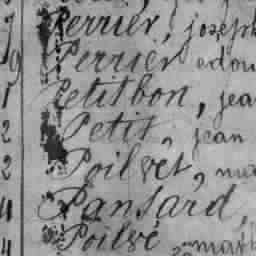 Perrier, joseph
9 Perrier edou
1 Petitbon, jea
2 Petit, jean
2 Poilvet, ma
4 Pansard,
4 Poilvé, math